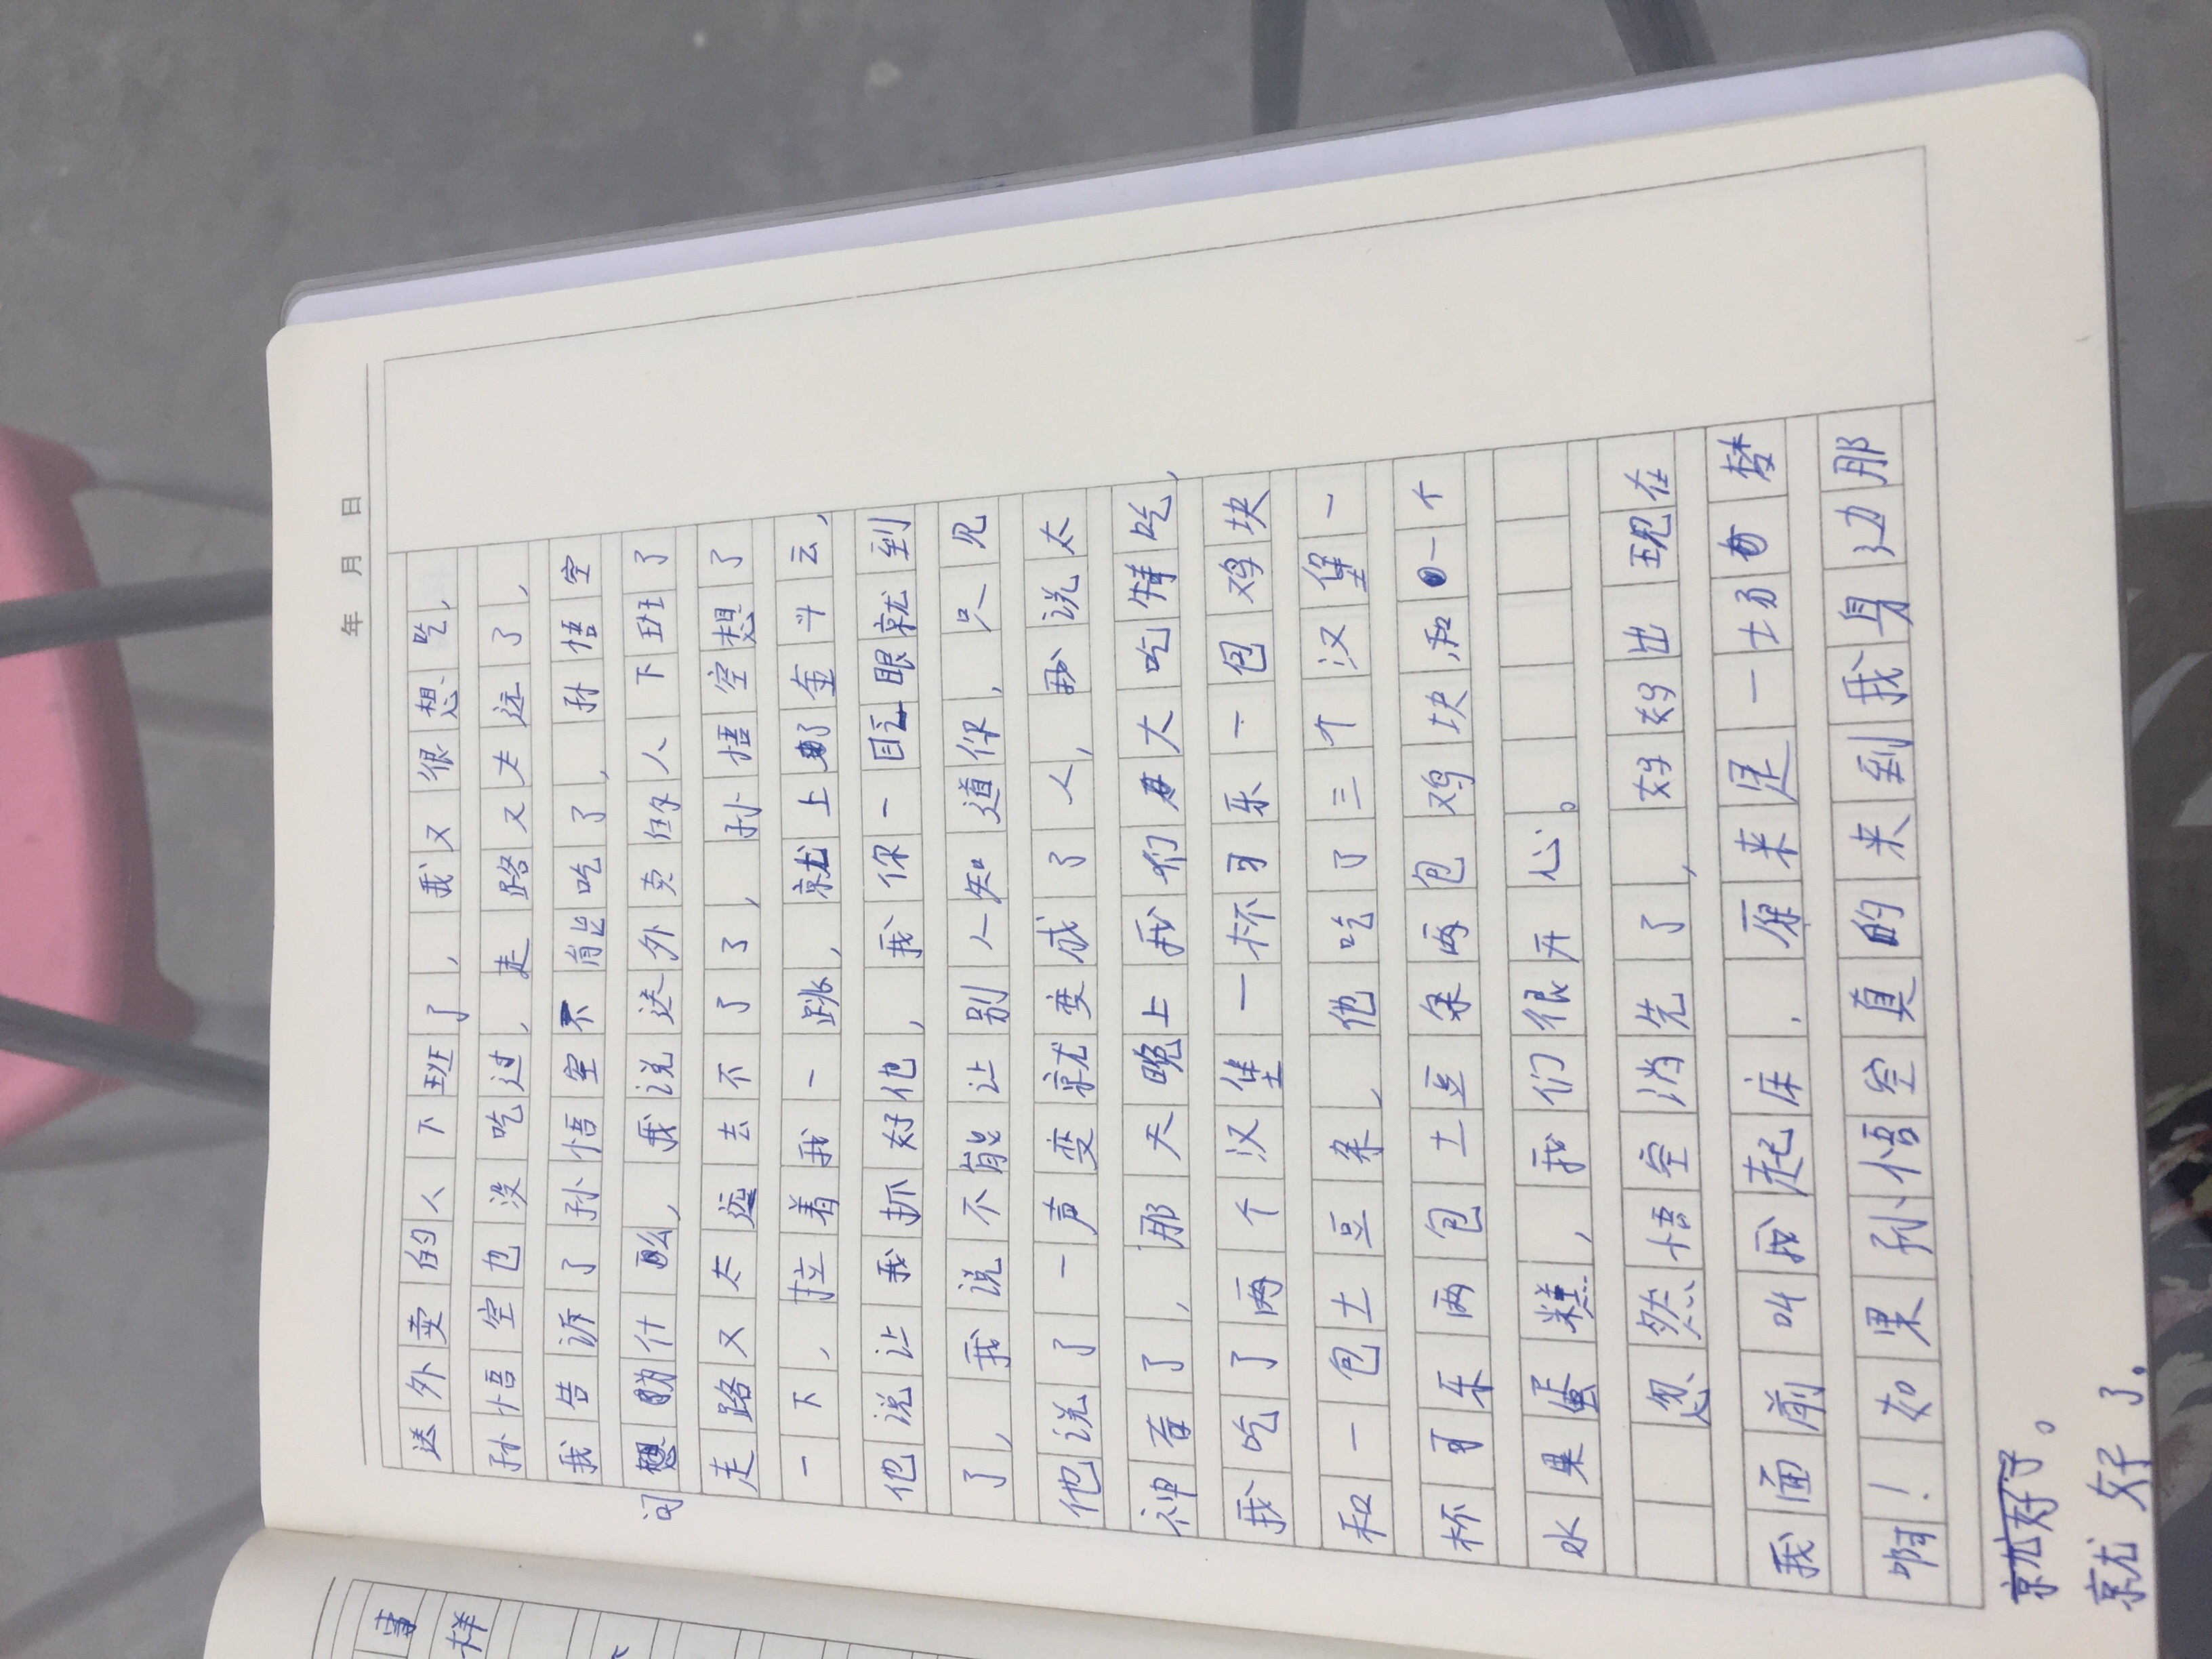 年 月 日
送外卖的人下班了，我又很想吃，
孙悟空也没吃过，走路又太远了，
我告诉了孙悟空不能吃了，孙悟空
问为什么，我说送外卖的人下班了
走路又太远去不了了，孙悟空想了
一下，拉着我一跳，就上了金斗云，
他说让我抓好他，我你一眨眼就到
了，我说不能让别人知道你，只见
他说了一声变就变成了人，我说太
神奇了，那天晚上我们大吃特吃，
我吃了两个汉堡一杯可乐一包鸡块
和一包土豆条，他吃了三个汉堡一
杯可乐两包土豆条两包鸡块和一个
水果蛋糕，我们很开心。
忽然悟空消先了，妈妈出现在
我面前叫我起床，原来是一场梦
啊！如果孙悟空真的来到我身边那
就好了。
事
样